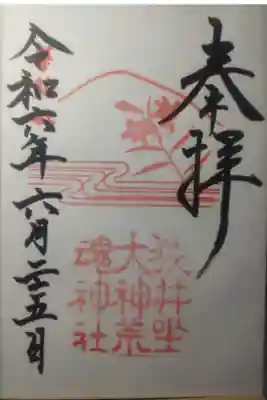 奉拝
狭井坐
大神荒
魂神社
令和六年六月二十五日